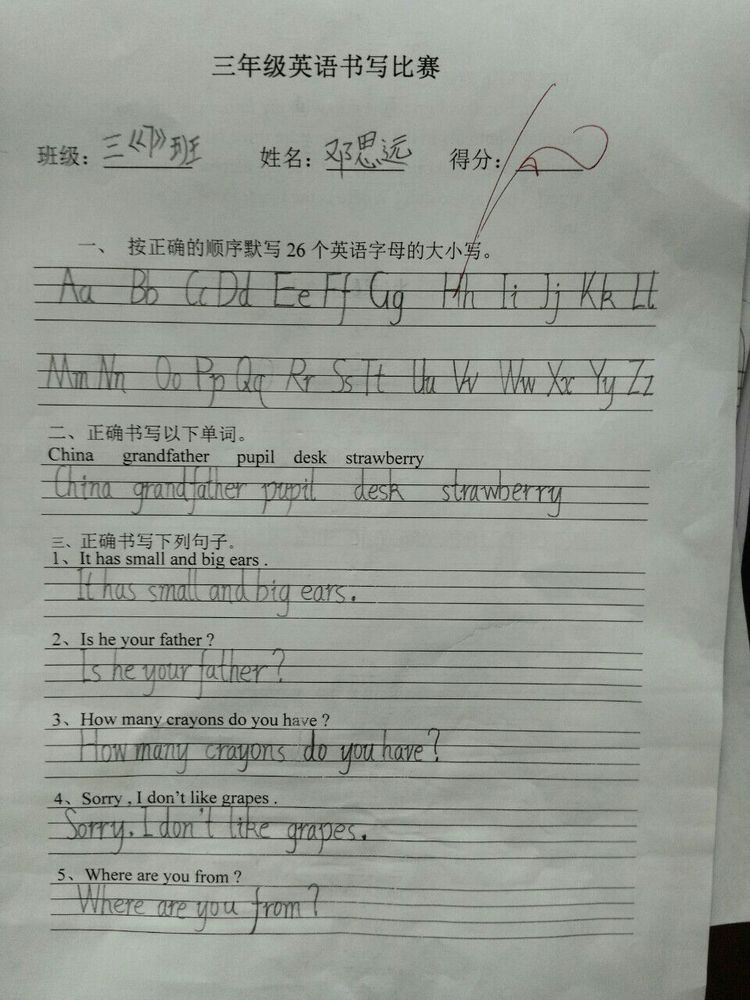 三年级英语书写比赛
班级：三《7》班 姓名：邓思远 得分：
一、 按正确的顺序默写 26 个英语字母的大小写。
Aa Bb Cc Dd Ee Ff Gg Hh Ii Jj Kk Ll
Mm Nn Oo Pp Qq Rr Ss Tt Uu Vv Ww Xx Yy Zz
二、正确书写以下单词。
China grandfather pupil desk strawberry
China grandfather pupil desk strawberry
三、正确书写下列句子。
1、It has small and big ears .
It has small and big ears.
2、Is he your father ?
Is he your father?
3、How many crayons do you have ?
How many crayons do you have?
4、Sorry , I don't like grapes .
Sorry. I don't like grapes.
5、Where are you from ?
Where are you from?